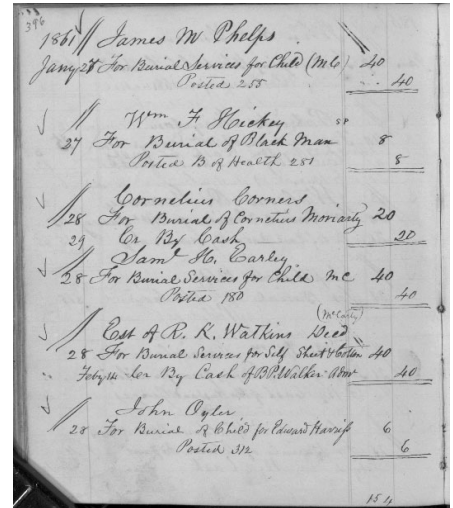 396
1861 James M Phelps
Jany 28 For Burial Services for Child (Mc) 40
Posted 255 40
Wm F Hickey
27 For Burial of Black Man 8
Posted B of Health 281 8
Cornelius Corners
28 For Burial of Cornelius Moriarty 20
29 Cr By Cash 20
Saml H. Earley
28 For Burial Services for Child Mc 40
Posted 180 40
(McCarty)
Est of R. K. Watkins Decd
28 For Burial Services for Self Sheet & Cotton 40
Feby 14 Cr By Cash of B P. Walker Admr 40
John Oyler
28 For Burial of Child for Edward Harriss 6
Posted 312 6
154